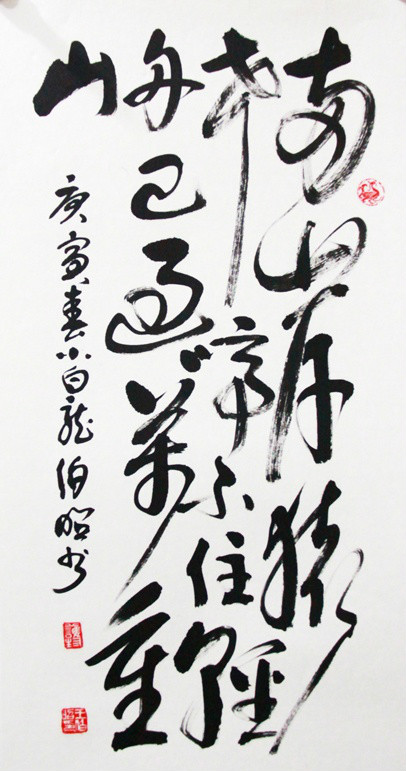 两岸猿
声啼不住輕
舟已過萬重
山
庚寅春小白龍伯昭书